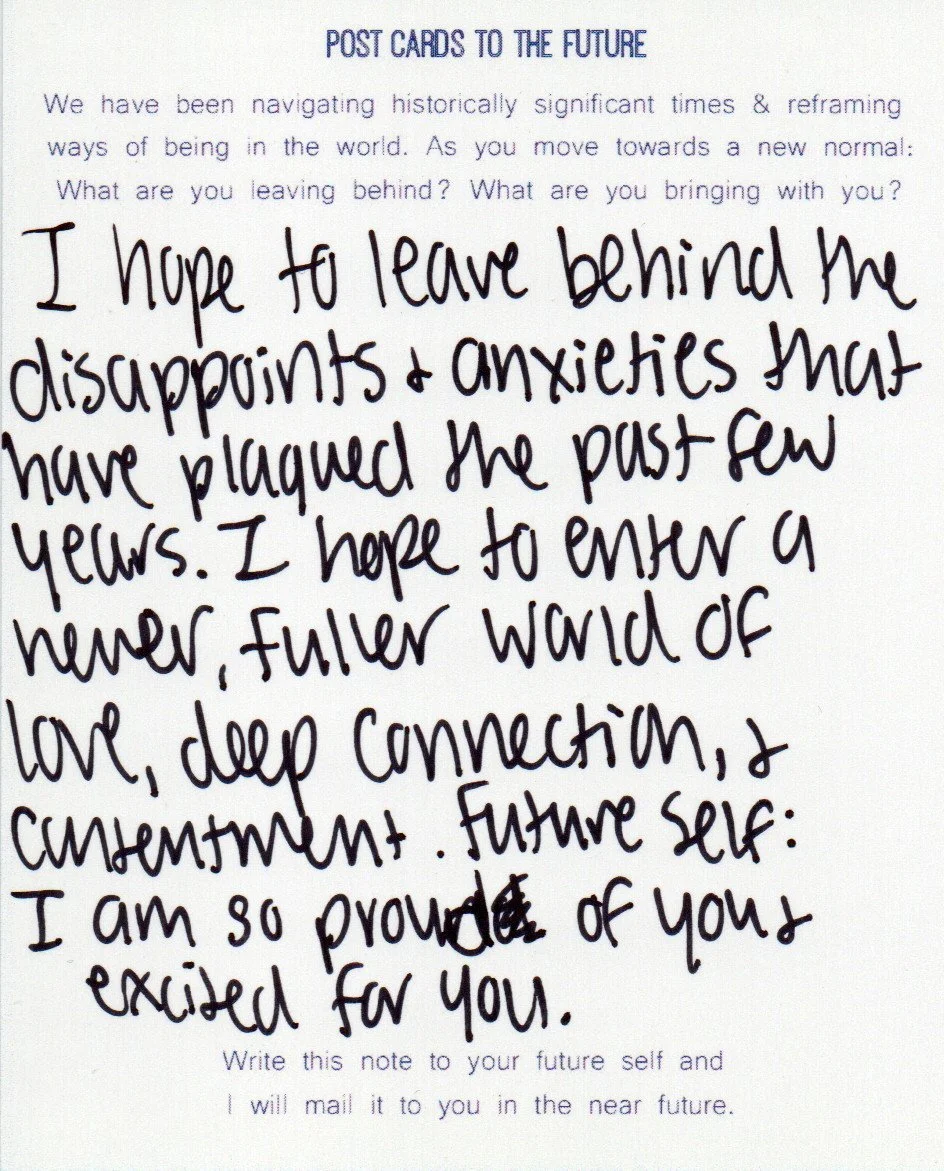 POST CARDS TO THE FUTURE
We have been navigating historically significant times & reframing
ways of being in the world. As you move towards a new normal:
What are you leaving behind? What are you bringing with you?
I hope to leave behind the
disappoints & anxieties that
have plagued the past few
years. I hope to enter a
newer, fuller world of
love, deep connection, &
contentment. Future self:
I am so proud of you &
excited for you.
Write this note to your future self and
I will mail it to you in the near future.